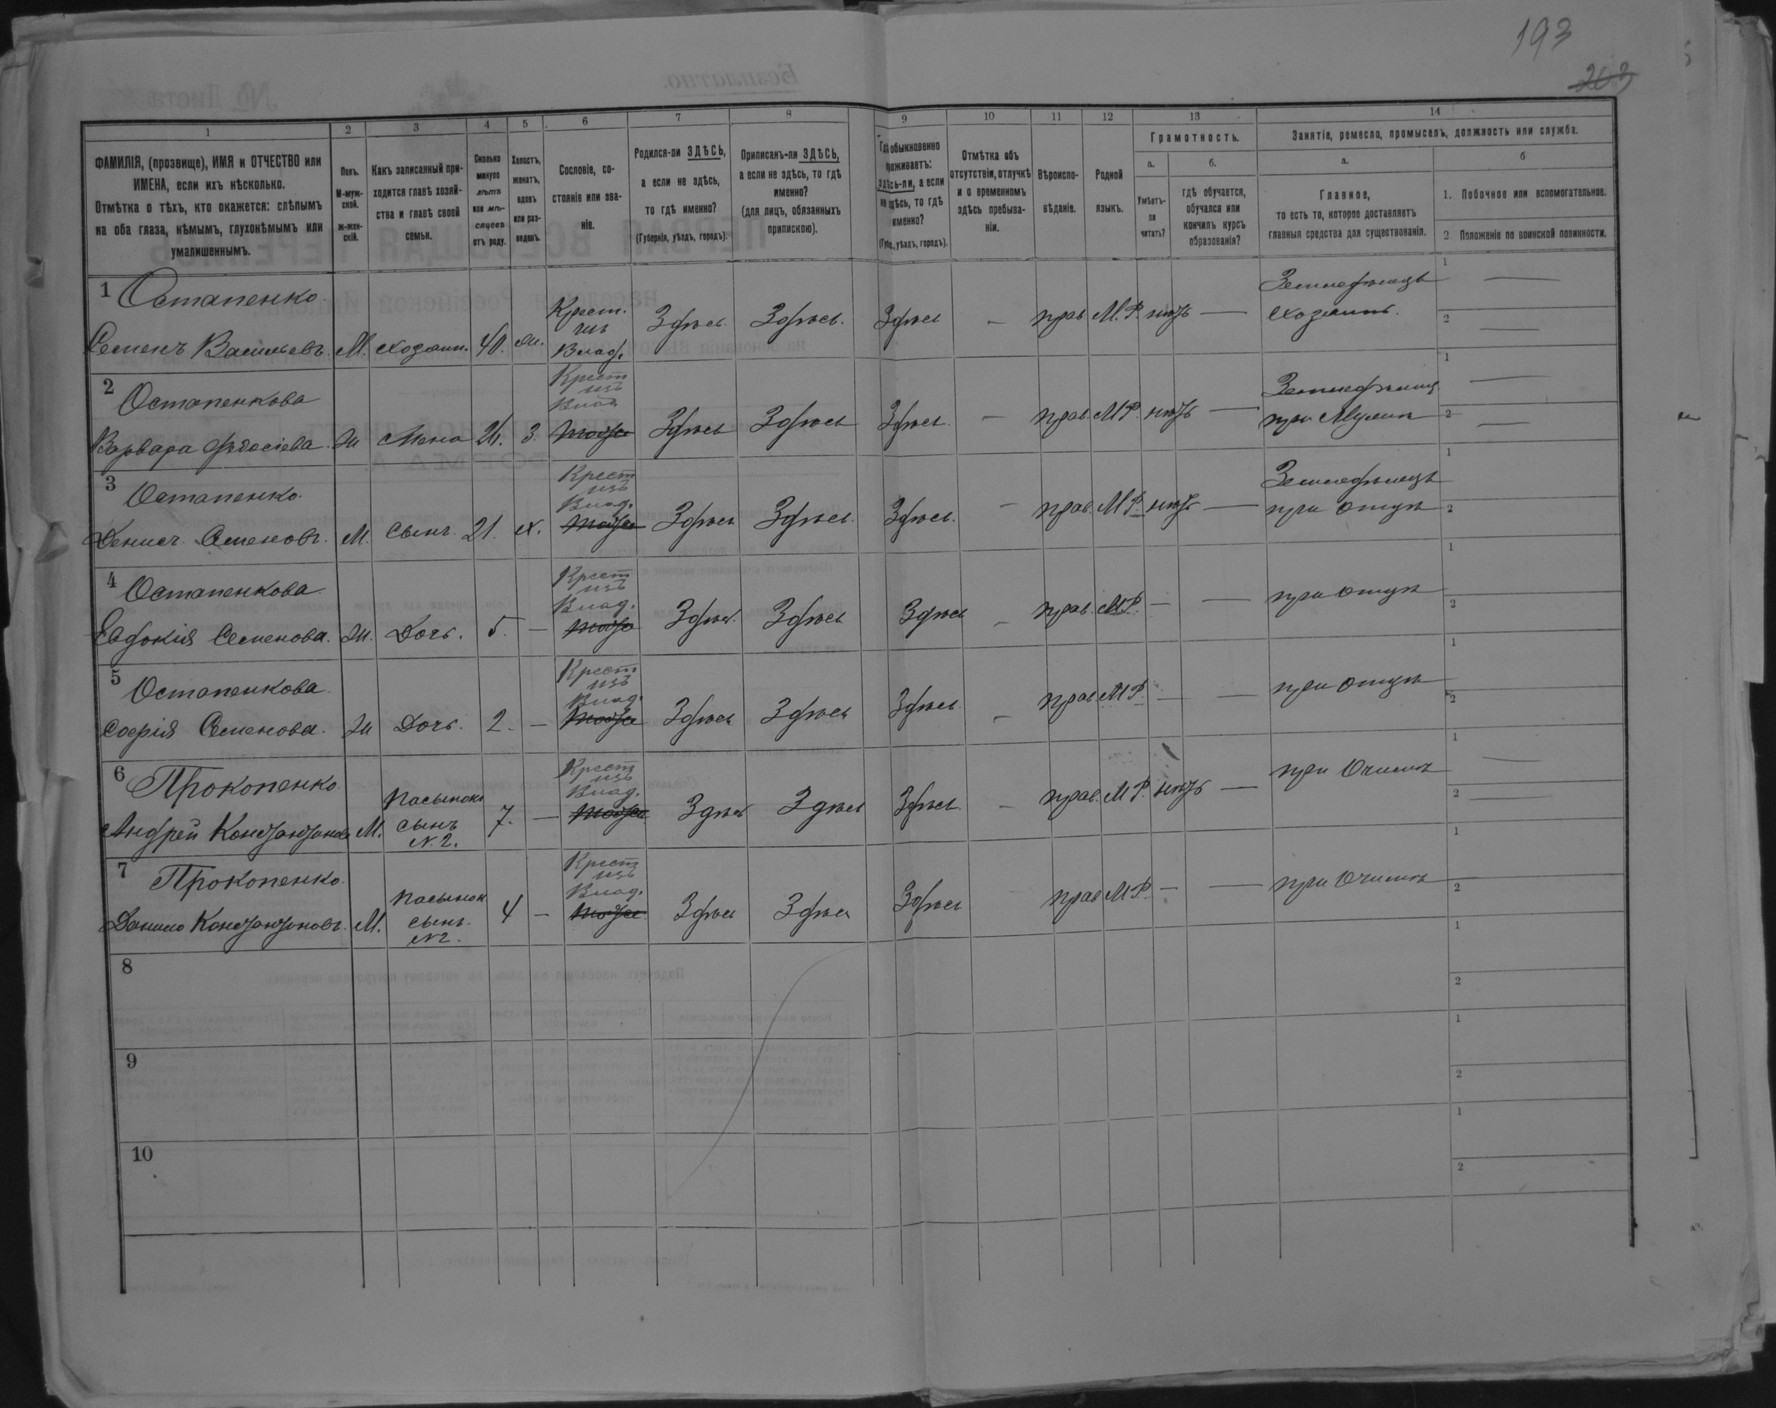 193
203
1 2 3 4 5 6 7 8 9 10 11 12 13 14
ФАМИЛІЯ, (прозвище), ИМЯ и ОТЧЕСТВО или
ИМЕНА, если ихъ нѣсколько.
Отмѣтка о тѣхъ, кто окажется: слѣпымъ
на оба глаза, нѣмымъ, глухонѣмымъ или
умалишеннымъ.
Полъ.
М-муж-
ской.
Ж-жен-
скій.
Какъ записанный при-
ходится главѣ хозяй-
ства и главѣ своей
семьи.
Сколько
минуло
лѣтъ
или мѣ-
сяцевъ
отъ роду.
Холостъ,
женатъ,
вдовъ
или раз-
веденъ.
Сословіе, со-
стояніе или зва-
ніе.
Родился-ли ЗДѢСЬ,
а если не здѣсь,
то гдѣ именно?
(Губернія, уѣздъ, городъ).
Приписанъ-ли ЗДѢСЬ,
а если не здѣсь, то гдѣ
именно?
(для лицъ, обязанныхъ
припискою).
Гдѣ обыкновенно
проживаетъ:
здѣсь-ли, а если
не здѣсь, то гдѣ
именно?
(Губ., уѣздъ, городъ).
Отмѣтка объ
отсутствіи, отлучкѣ
и о временномъ
здѣсь пребыва-
ніи.
Вѣроиспо-
вѣданіе.
Родной
языкъ.
Грамотность.
а.
Умѣетъ-
ли
читать?
б.
гдѣ обучается,
обучался или
кончилъ курсъ
образованія?
Занятія, ремесло, промыселъ, должность или служба.
а.
Главное,
то есть то, которое доставляетъ
главныя средства для существованія.
б
1. Побочное или вспомогательное.
2 Положеніе по воинской повинности.
1 Остапенко
Семенъ Васильевъ М. хозяин. 40. жн. Крест. изъ Влад. Здѣсь. Здѣсь. Здѣсь — прав М.Р. нѣтъ — Земледѣлецъ хозяинъ. 1 — 2 —
2 Остапенкова
Варвара Ѳедосіева Ж Жена 3. Крест изъ Влад Здѣсь Здѣсь Здѣсь — прав М.Р. нѣтъ — при Мужѣ 1 — 2 —
3 Остапенко
Денисъ Семеновъ. М. Сынъ. 21. х. Крест изъ Влад. Здѣсь Здѣсь. Здѣсь. — прав. М.Р. нѣтъ — Земледѣлецъ при отцѣ 1 2
4 Остапенкова
Евдокія Семенова. Ж. Дочь. 5. — Крест изъ Влад. Здѣсь. Здѣсь Здѣсь — прав. М.Р. — — при отцѣ 1 2
5 Остапенкова
Софія Семенова. Ж Дочь. 2. — Крест изъ Влад. Здѣсь Здѣсь Здѣсь — прав. М.Р. — — при отцѣ 1 2
6 Прокопенко
Андрей Константиновъ М. Пасынокъ сынъ N 2. 7. — Крест изъ Влад. Здѣсь Здѣсь Здѣсь — прав. М.Р. нѣтъ — при Отчимѣ 1 — 2 —
7 Прокопенко
Данило Константиновъ. М. Пасынок сынъ. N2. 4 — Крест изъ Влад. Здѣсь Здѣсь Здѣсь прав М.Р. — — при Отчимѣ 1 2
8 1 2
9 1 2
10 1 2